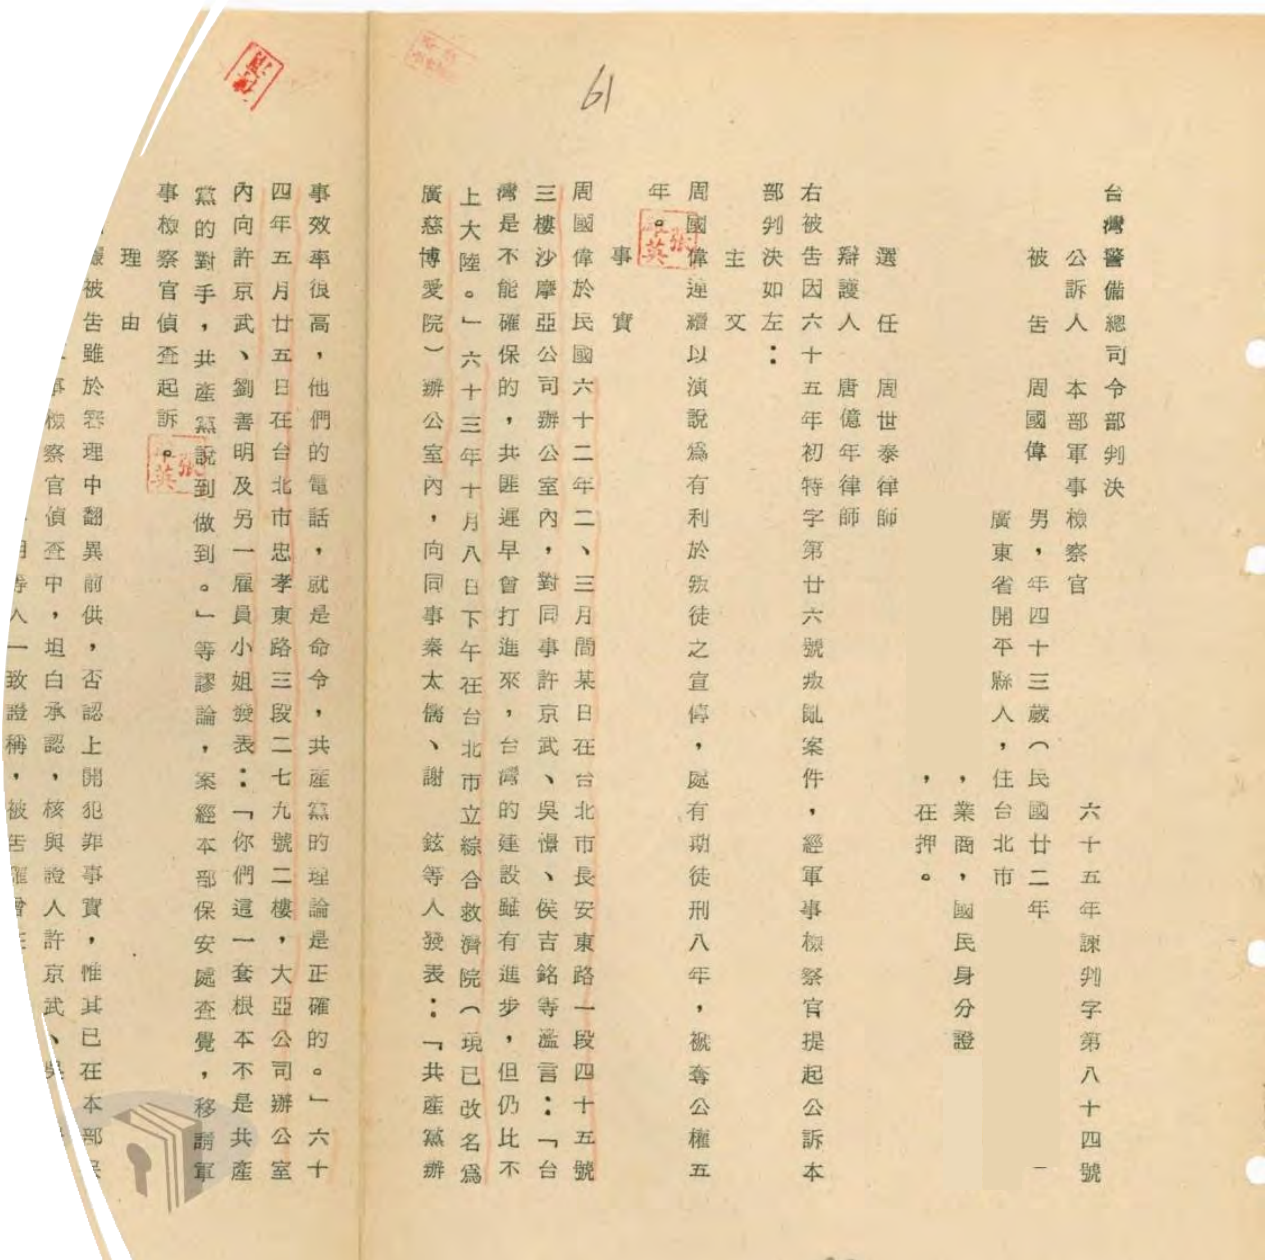 61
台灣警備總司令部判決
六十五年諫判字第八十四號
公訴人 本部軍事檢察官
被告 周國偉 男,年四十三歲(民國廿二年
廣東省開平縣人,住台北市
,業商,國民身分證
,在押。
選任 周世泰律師
辯護人 唐億年律師
右被告因六十五年初特字第廿六號叛亂案件,經軍事檢察官提起公訴本
部判決如左:
主文
周國偉連續以演說為有利於叛徒之宣傳,處有期徒刑八年,褫奪公權五
年。
事實
周國偉於民國六十二年二、三月間某日在台北市長安東路一段四十五號
三樓沙摩亞公司辦公室內,對同事許京武、吳憬、侯吉銘等濫言:「台
灣是不能確保的,共匪遲早會打進來,台灣的建設雖有進步,但仍比不
上大陸。」六十三年十月八日下午在台北市立綜合救濟院(現已改名為
廣慈博愛院)辦公室內,向同事秦太儒、謝 鉉等人發表:「共產黨辦
事效率很高,他們的電話,就是命令,共產黨的理論是正確的。」六十
四年五月廿五日在台北市忠孝東路三段二七九號二樓,大亞公司辦公室
內向許京武、劉善明及另一雇員小姐發表:「你們這一套根本不是共產
黨的對手,共產黨說到做到。」等謬論,案經本部保安處查覺,移請軍
事檢察官偵查起訴。
理由
被告雖於審理中翻異前供,否認上開犯罪事實,惟其已在本部
事檢察官偵查中,坦白承認,核與證人許京武、吳
等人一致證稱,被告確曾在